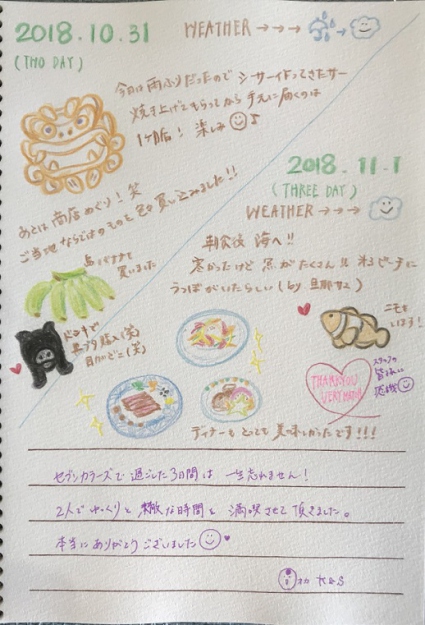 2018.10.31
WEATHER
(TWO DAY)
今日は雨ふりだったのでシーサー作ってきたサー
焼き上げてもらってから手元に届くのは
1ヶ月后! 楽しみ♪
あとは商店めぐり!笑
ご当地ならではのものを 買い込みました!!
島バナナも
買いました
黒ブタ購入(笑)
2018.11.1
(THREE DAY)
WEATHER
朝食後 海へ!!
寒かったけど 魚がたくさん!! ネコビーチに
うつぼがいたらしい (by 旦那サン)
ニモも
いましたよ!
THANKYOU
VERY MATCH
スタッフの
皆さんに
感謝
ディナーもとっても美味しかったです!!!
セブンカラーズで過ごした3日間は一生忘れません!
2人でゆっくりと素敵な時間を満喫させて頂きました。
本当にありがとうございました♥
K&S